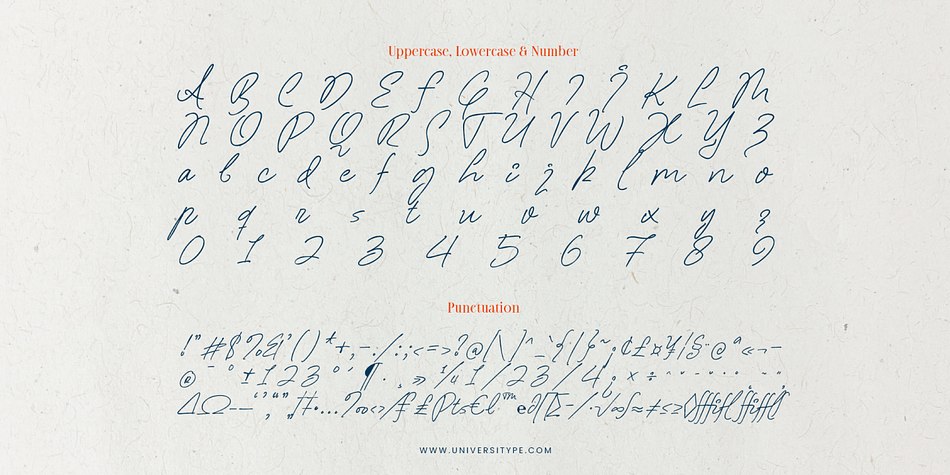 Uppercase, Lowercase & Number
A B C D E F G H I J K L M
N O P Q R S T U V W X Y Z
a b c d e f g h i j k l m n o
p q r s t u v w x y z
0 1 2 3 4 5 6 7 8 9
Punctuation
!"#$%&'()*+,-./:;<=>?@[\]^_`{|}~¡¢£¤¥¦§¨©ª«¬-
®¯°±123°´¶·¸»¼1/23/4¿×÷
ΔΩ–—‘’‚“”„†•…‰‹›⁄ƒ₤₧€ℓ™℮∂∏∑−∕∙√∞∫≈≠≤≥◊
WWW.UNIVERSITYPE.COM